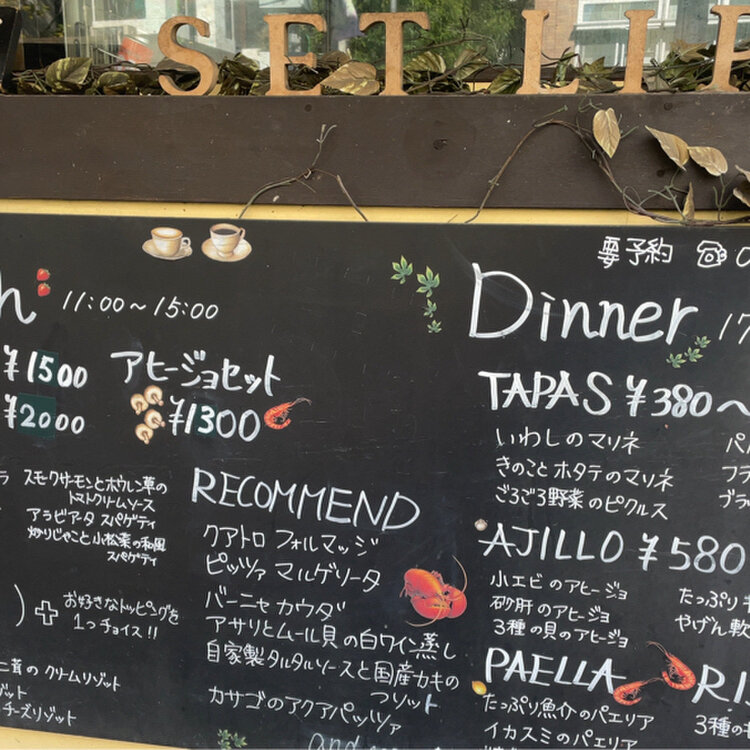 SET LIP
要予約 ☎0
n 11:00〜15:00
¥1500
¥2000
アヒージョセット
¥1300
スモークサーモンとホウレン草の
トマトクリームソース
アラビアータ スパゲティ
炒りじゃこと小松菜の和風
スパゲティ
) + お好きなトッピングを
1つチョイス!!
ニ茸の クリームリゾット
ゾット
チーズリゾット
RECOMMEND
クアトロ フォルマッジ
ピッツァ マルゲリータ
バーニャカウダ
アサリとムール貝の白ワイン蒸し
自家製タルタルソースと国産カキの
つリット
カサゴのアクアパッツァ
and
Dinner 17
TAPAS ¥380〜
いわしのマリネ
きのことホタテのマリネ
ごろごろ野菜のピクルス
パ
フラ
ブラ
AJILLO ¥580
小エビのアヒージョ
砂肝のアヒージョ
3種の貝のアヒージョ
たっぷり
やげん軟
PAELLA
たっぷり魚介のパエリア
イカスミのパエリア
RI
3種の